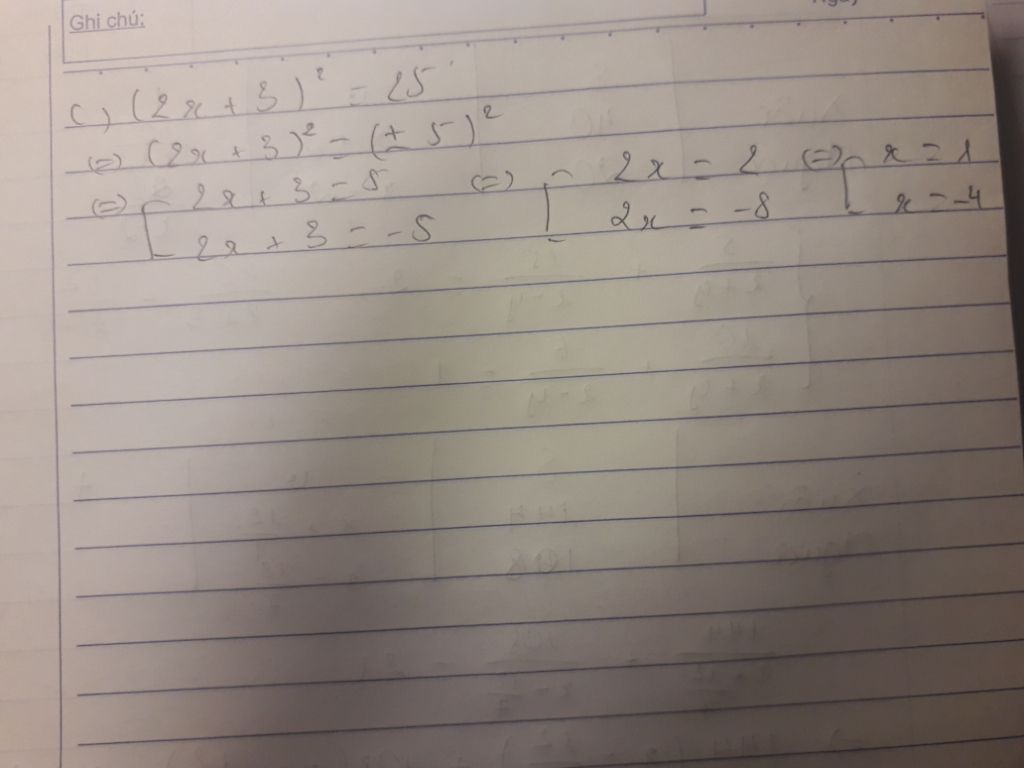 Ghi chú:
c) (2x + 3)² = 25
(=) (2x + 3)² = (± 5)²
(=) [ 2x + 3 = 5 (=) [ 2x = 2 (=) [ x = 1
2x + 3 = -5 2x = -8 x = -4